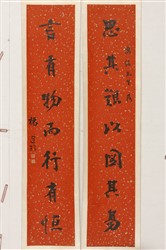 思其艱以圖其易
言有物而行有恒